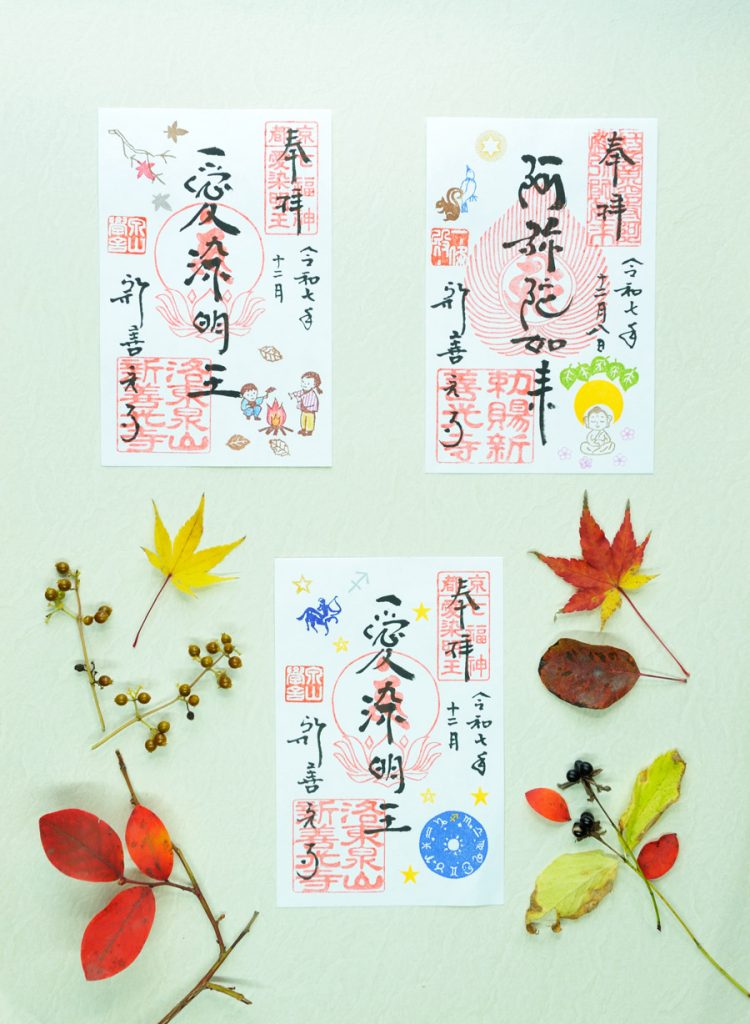 奉拝
令和七年
十二月
愛染明王
新善光寺
京都
七福神
愛染明王
泉山
洛東泉山
新善光寺
奉拝
令和七年
十二月八日
阿弥陀如来
新善光寺
勅賜新
善光寺
奉拝
令和七年
十二月
愛染明王
新善光寺
京都
七福神
愛染明王
泉山
洛東泉山
新善光寺